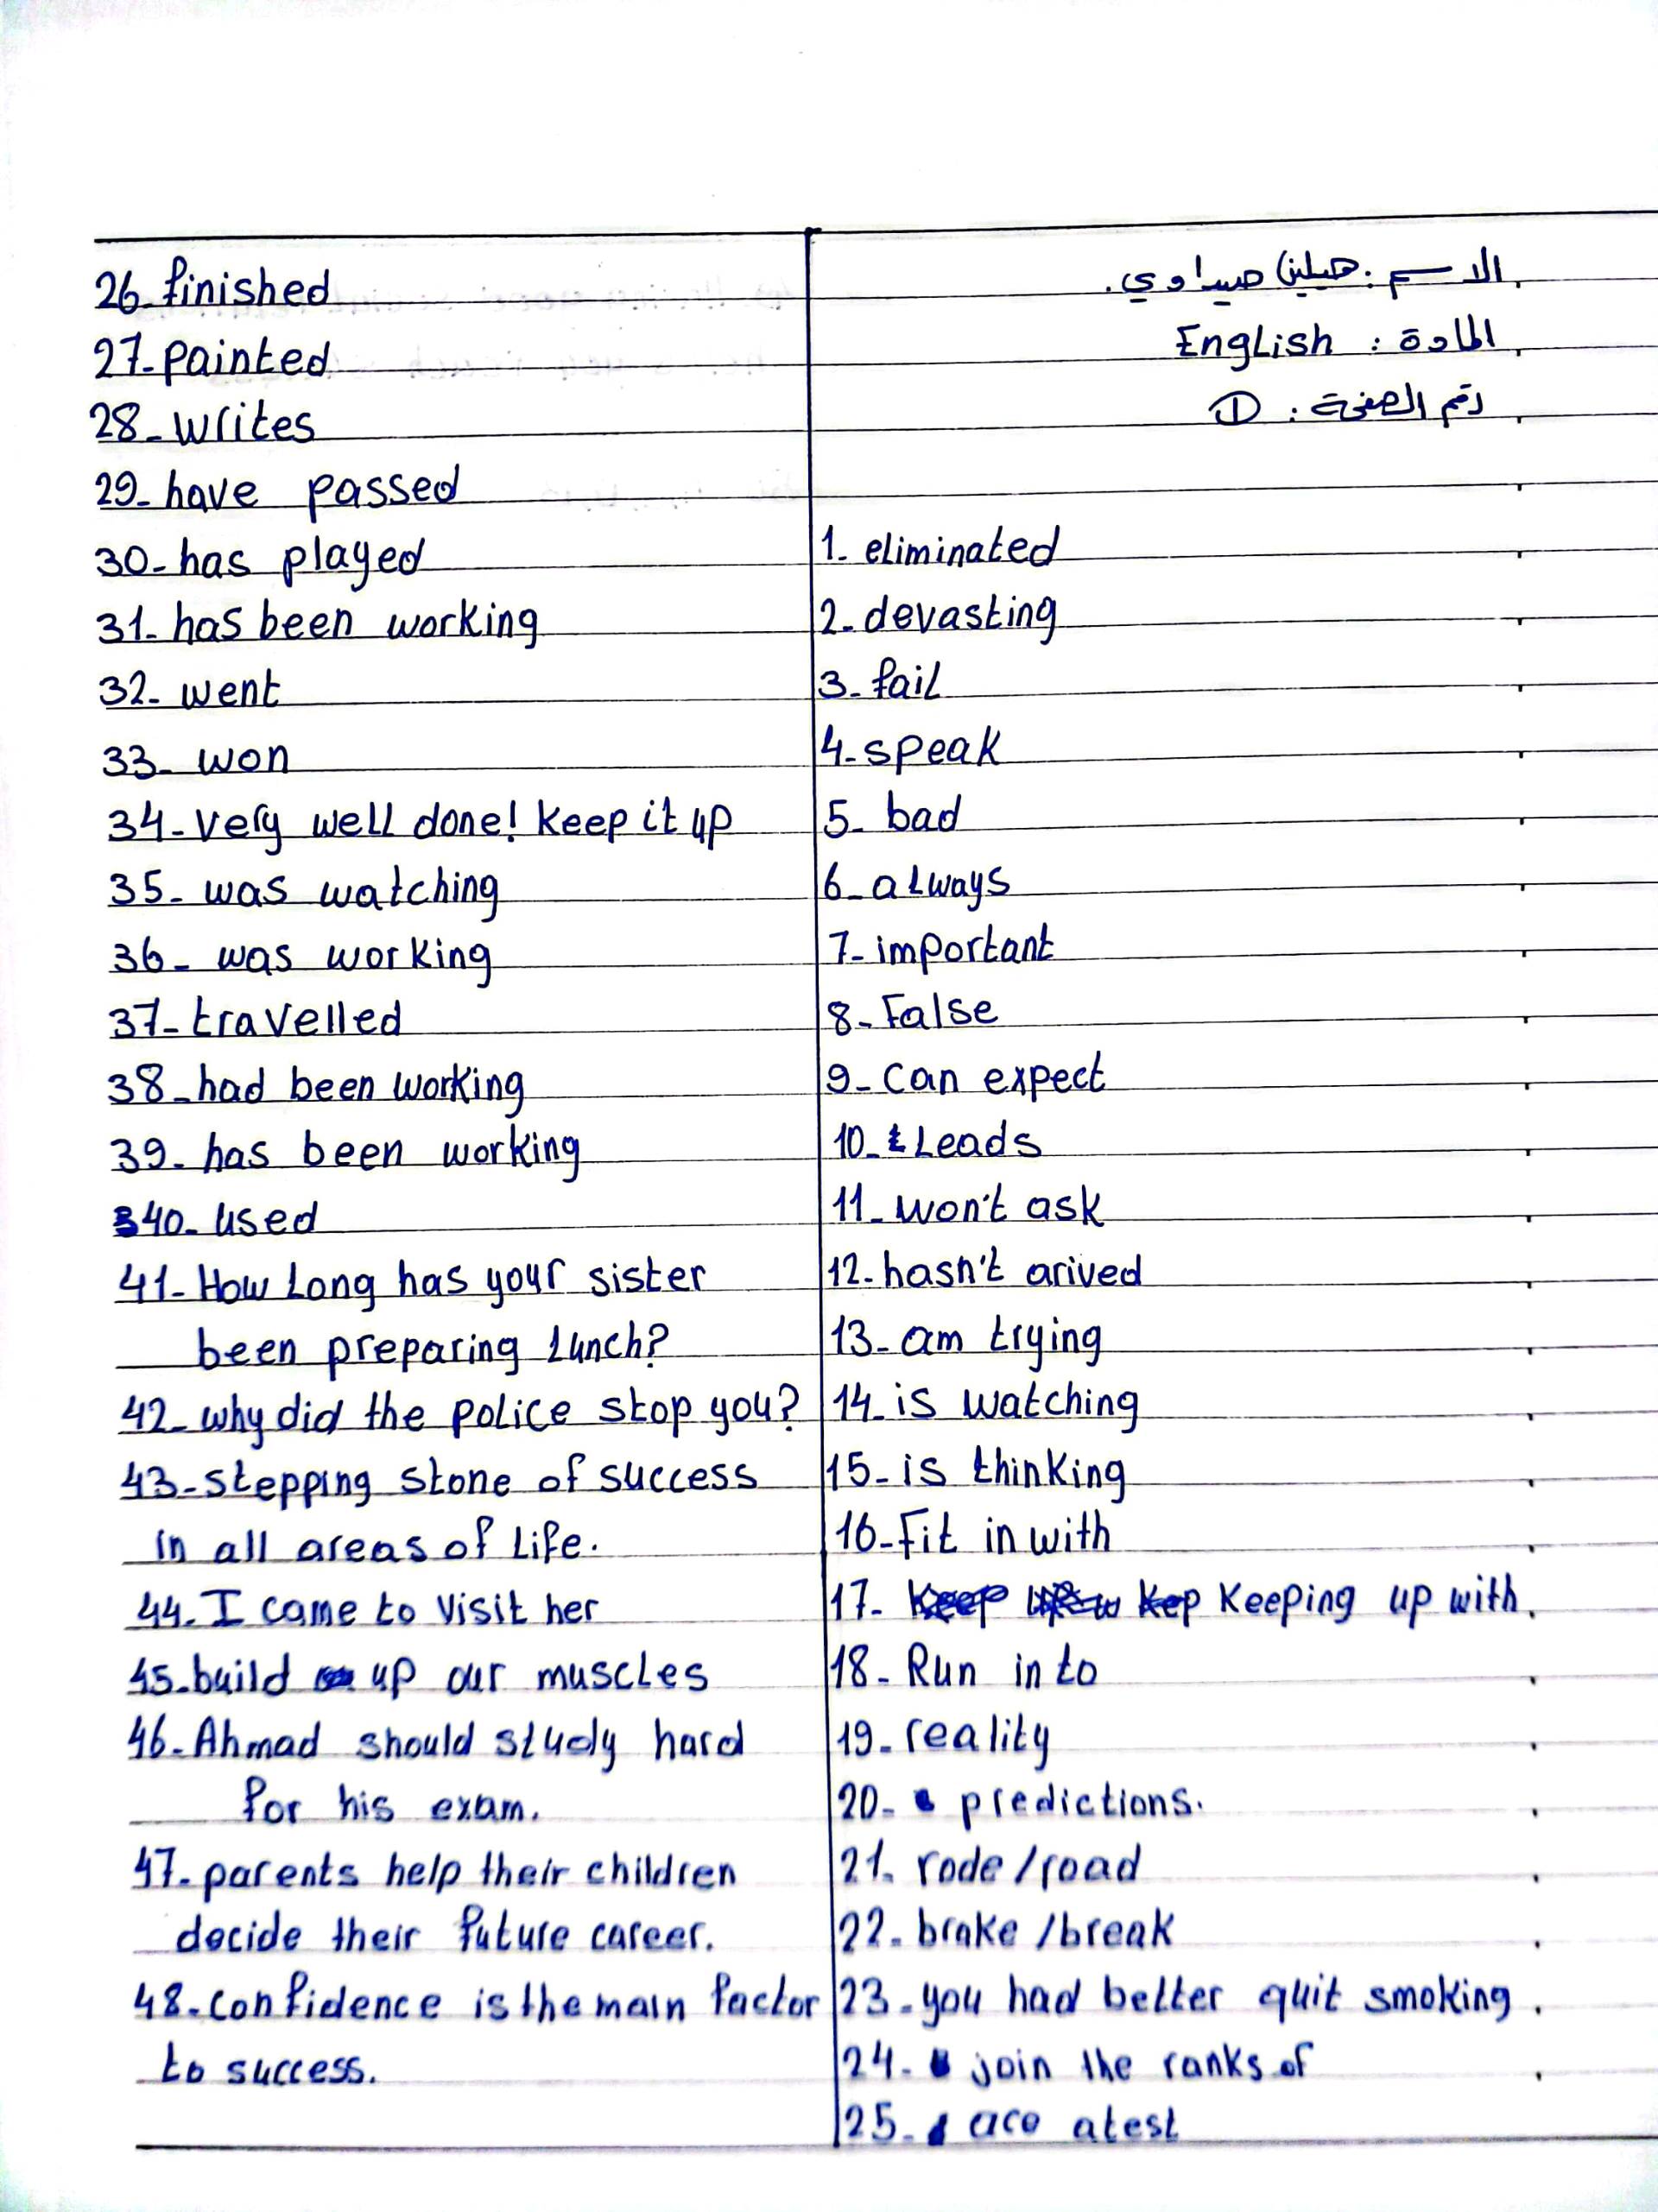 الاسم : هيلين صيداوي.
المادة : English
رقم الصفحة : ①
1- eliminated
2- devasting
3- fail
4- speak
5- bad
6- always
7- important
8- False
9- Can expect
10- Leads
11- won't ask
12- hasn't arived
13- am trying
14- is watching
15- is thinking
16- Fit in with
17- Keeping up with.
18- Run in to
19- reality
20- predictions.
21. rode / road
22- brake / break
23- you had better quit smoking.
24- join the ranks of
25- ace atest
26- finished
27- painted
28- writes
29- have passed
30- has played
31- has been working
32- went
33- won
34- very well done! keep it up
35- was watching
36- was working
37- travelled
38- had been working
39- has been working
40- used
41- How Long has your sister
been preparing lunch?
42- why did the police stop you?
43- stepping stone of success
in all areas of life.
44. I came to visit her
45. build up our muscles
46- Ahmad should study hard
for his exam.
47- parents help their children
decide their future career.
48- confidence is the main factor
to success.